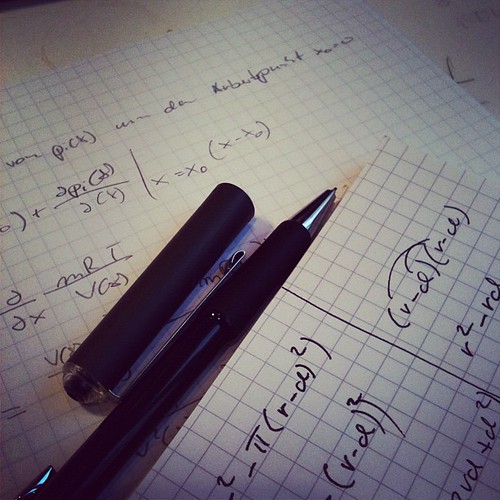 von pᵢ(x) um den Arbeitspunkt x₀=0
₀) + ∂pᵢ(x)/∂(x) | x=x₀ (x-x₀)
∂/∂x mRT/V(x)
=
(r-d)(r-d)
r²-rd
rd+d²
² - π(r-d)²)
- (r-d)²)